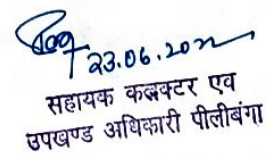 23.06.2022
सहायक कलक्टर एव
उपखण्ड अधिकारी पीलीबंगा